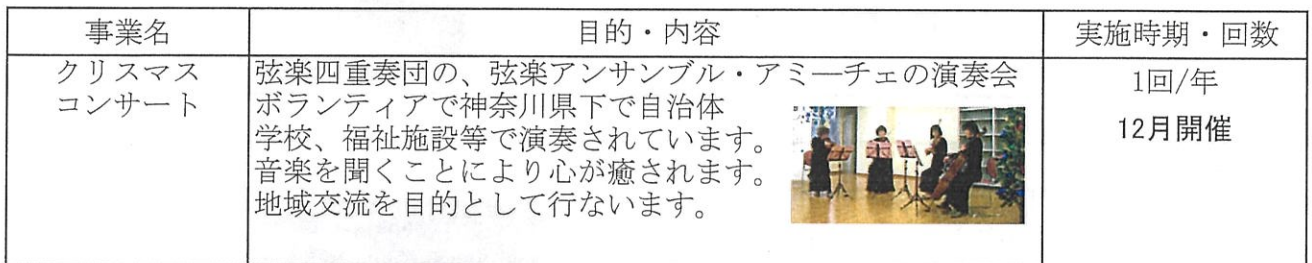 事業名 目的・内容 実施時期・回数
クリスマス
コンサート
弦楽四重奏団の、弦楽アンサンブル・アミ―チェの演奏会
ボランティアで神奈川県下で自治体
学校、福祉施設等で演奏されています。
音楽を聞くことにより心が癒されます。
地域交流を目的として行ないます。
1回/年
12月開催